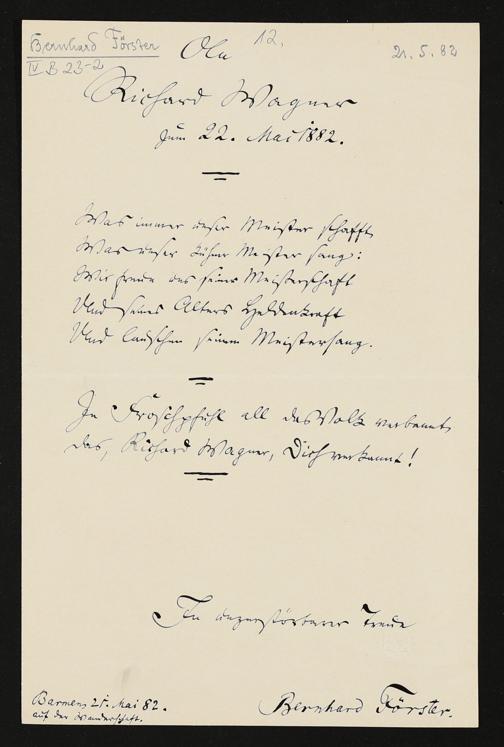 Bernhard Förster
IV B 23-2
12.
21. 5. 82
An
Richard Wagner
zum 22. Mai 1882.
Was immer unser Meister schafft,
Was unser kühner Meister sang:
Wir freun uns seiner Meisterschaft
Und seines Alters Heldenkraft
Und lauschen seinem Meistersang.
In Froschpfuhl all das Volk verbannt,
das, Richard Wagner, Dich verkannt!
In unzerstörbarer Treue
Bernhard Förster.
Barmen 21. Mai 82.
auf der Wanderschaft.